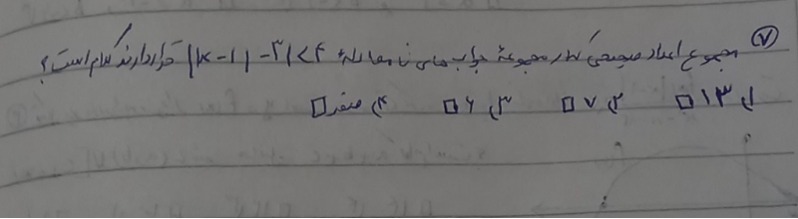 ۷) مجموع اعداد صحیحی که در مجموعهٔ جواب‌های نامعادله‌ٔ ||x-1|-3|<4 قرار دارند کدام است؟
۱) ۱۳ □ ۲) ۷ □ ۳) ۶ □ ۴) صفر □